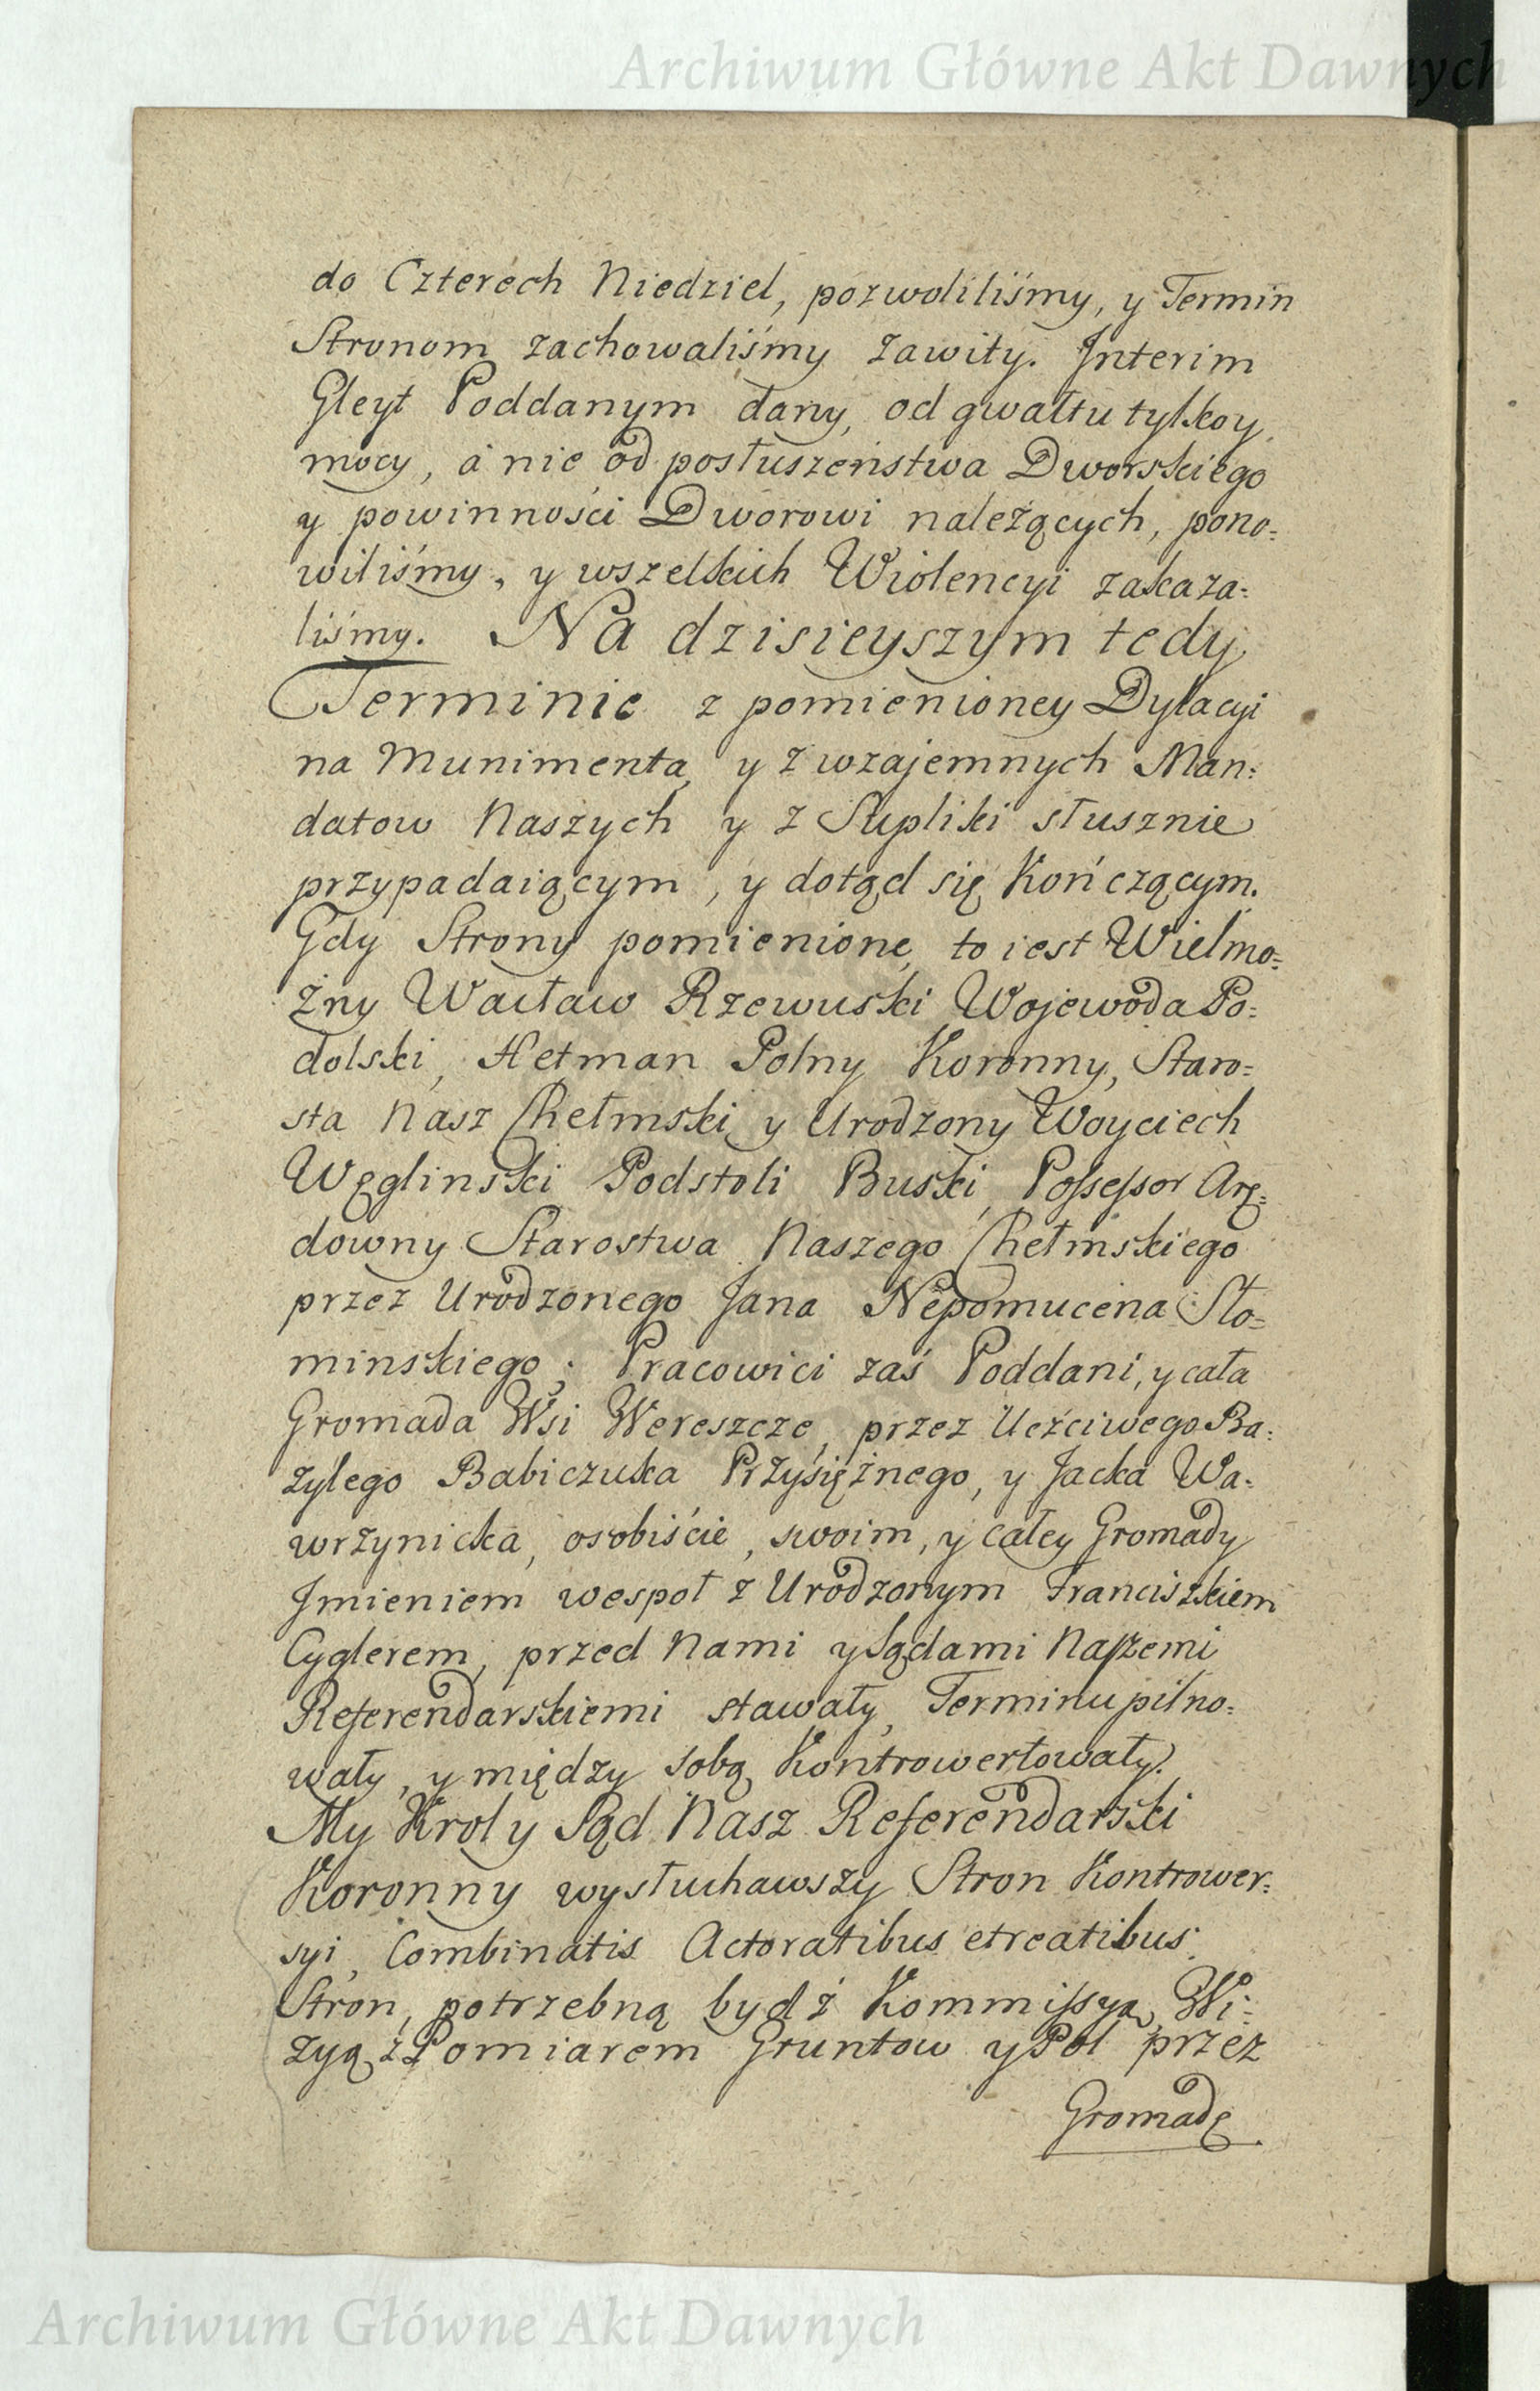 Archiwum Główne Akt Dawnych
do Czterech Niedziel, pozwoliliśmy, y Termin
Stronom zachowaliśmy zawity. Interim
Gleyt Poddanym dany, od gwałtu tylko y
mocy, á nie od posłuszeństwa Dworskiego
y powinności Dworowi należących, pono=
wiliśmy, y wszelkich Wiolencyi zakaza=
liśmy. Na dzisieyszym tedy
Terminie z pomienioney Dylacyi
na Munimenta, y z wzajemnych Man=
datow Naszych y z Supliki słusznie
przypadaiącym, y dotąd się Kończącym.
Gdy Strony pomienione, to iest Wielmo=
żny Wacław Rzewuski Wojewoda Po=
dolski, Hetman Polny Koronny, Staro=
sta Nasz Chełmski y Urodzony Woyciech
Węglinski Podstoli Buski, Possessor Arę=
downy Starostwa Naszego Chełmskiego
przez Urodzonego Jana Nepomucena Sło=
minskiego; Pracowici zaś Poddani, y cała
Gromada Wsi Wereszcze, przez Uczciwego Ba=
zylego Babiczuka Przysiężnego, y Jacka Wa=
wrzynicka, osobiście, swoim, y całey Gromady
Jmieniem wespoł z Urodzonym Franciszkiem
Cyglerem, przed Nami y Sądami Naszemi
Referendarskiemi stawały, Terminu pilno=
wały, y między sobą Kontrowertowały.
My Krol y Sąd Nasz Referendarski
Koronny wysłuchawszy Stron Kontrower=
syi, Combinatis Actoratibus et reatibus
Stron, potrzebną bydź Kommissyą, Wi=
zyą z Pomiarem Gruntow y Pol przez
Gromadę
Archiwum Główne Akt Dawnych